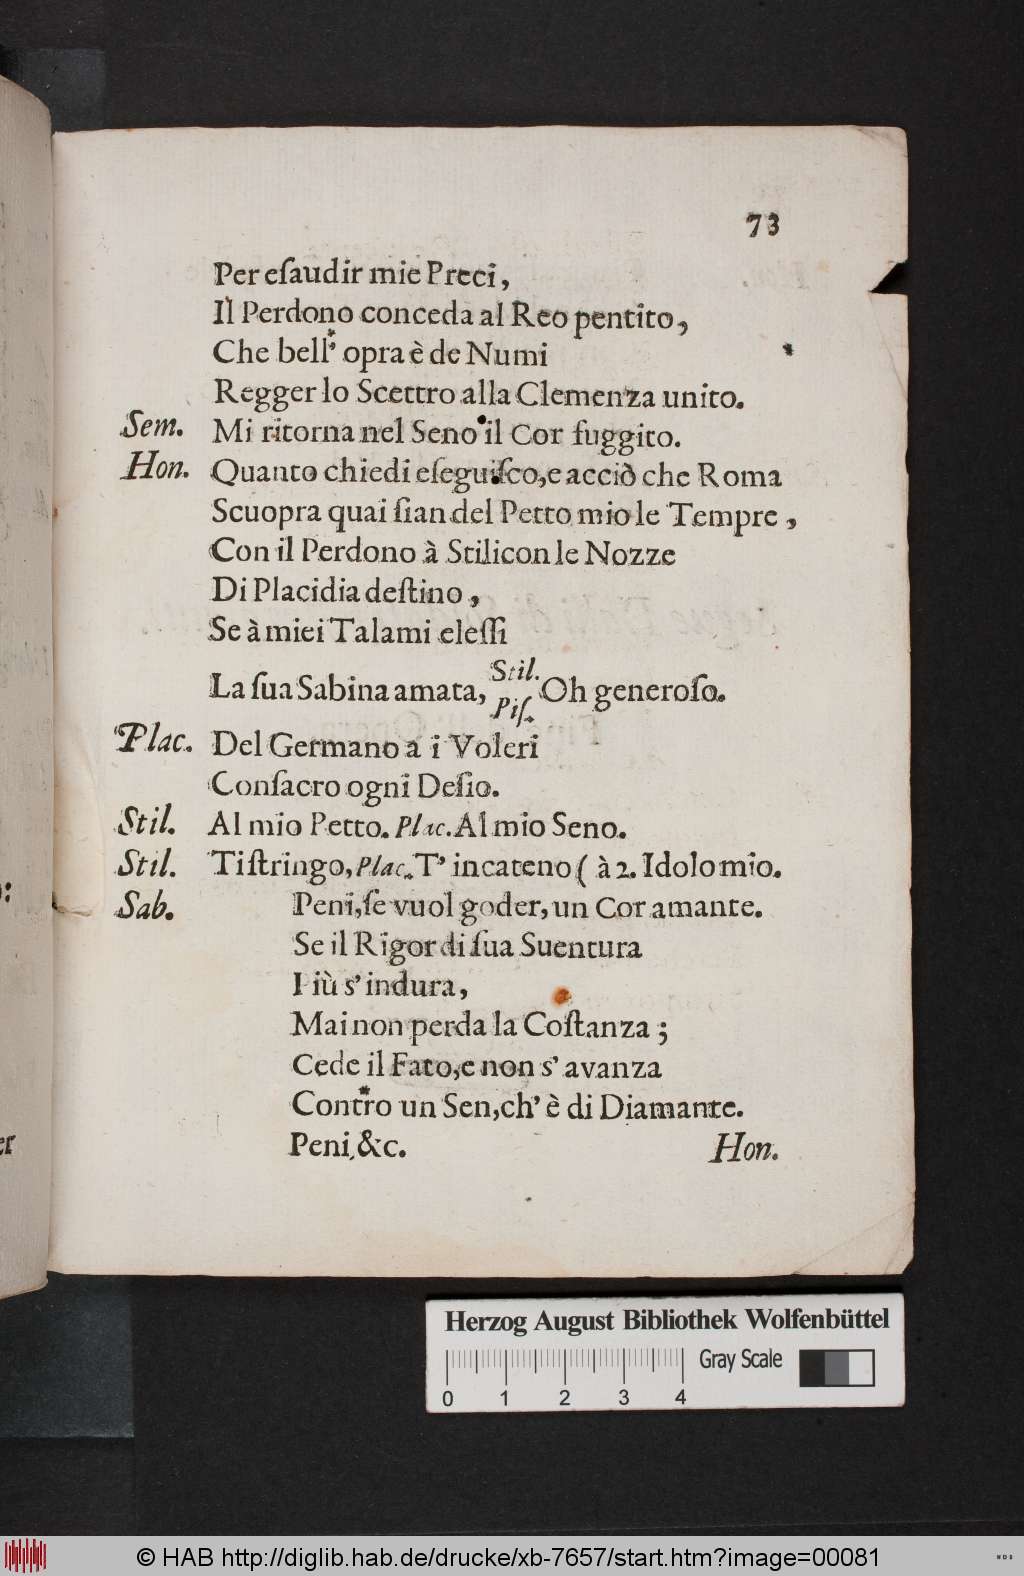 73
Per eſaudir mie Preci,
Il Perdono conceda al Reo pentito,
Che bell' opra è de Numi
Regger lo Scettro alla Clemenza unito.
Sem. Mi ritorna nel Seno il Cor fuggito.
Hon. Quanto chiedi eſeguiſco, e acciò che Roma
Scuopra quai ſian del Petto mio le Tempre,
Con il Perdono à Stilicon le Nozze
Di Placidia deſtino,
Se à miei Talami eleſſi
La ſua Sabina amata, Stil. Piſ. Oh generoſo.
Plac. Del Germano a i Voleri
Conſacro ogni Deſio.
Stil. Al mio Petto. Plac. Al mio Seno.
Stil. Ti ſtringo, Plac. T' incateno ( à 2. Idolo mio.
Sab. Peni, ſe vuol goder, un Cor amante.
Se il Rigor di ſua Suentura
Più s' indura,
Mai non perda la Coſtanza;
Cede il Fato, e non s' avanza
Contro un Sen, ch' è di Diamante.
Peni, &c. Hon.
er
Herzog August Bibliothek Wolfenbüttel
Gray Scale
0 1 2 3 4
© HAB http://diglib.hab.de/drucke/xb-7657/start.htm?image=00081